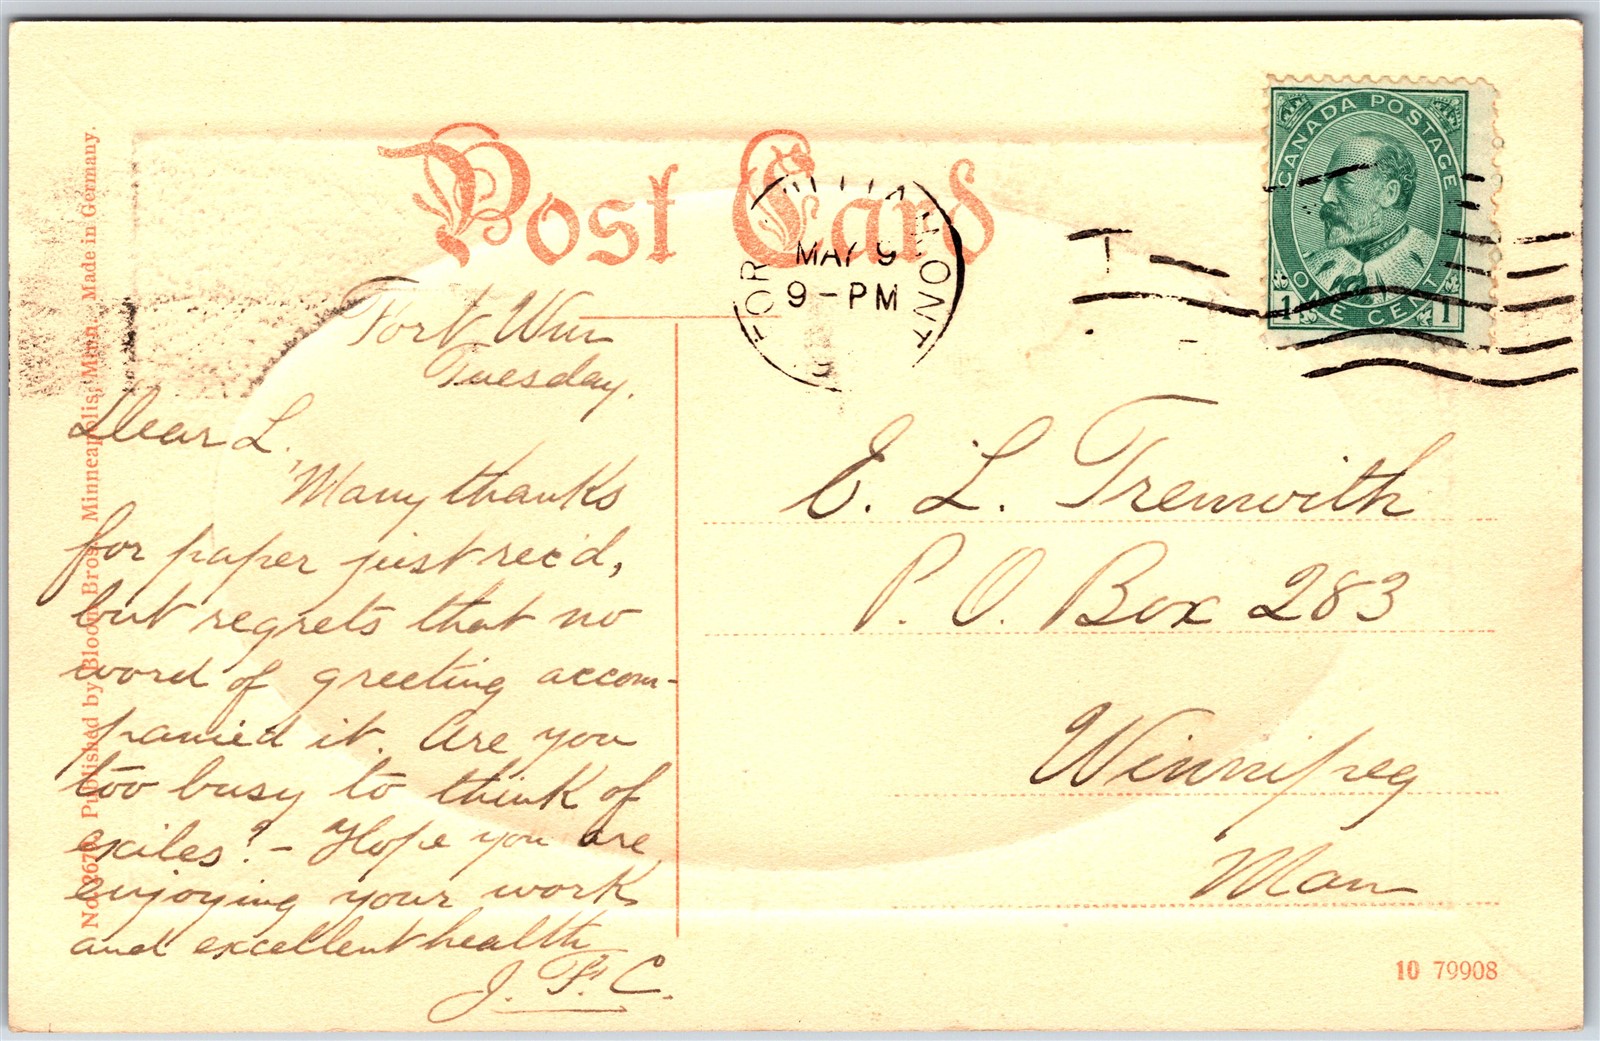 Post Card
CANADA POSTAGE
ONE CENT
1 1
MAY 9
9-PM
ONT
Fort Wm
Tuesday.
Dear L.
Many thanks
for paper just rec'd,
but regrets that no
word of greeting accom-
panied it. Are you
too busy to think of
exiles? - Hope you are
enjoying your work
and excellent health
J. F. C.
E. L. Tremwith
P. O. Box 283
Winnipeg
Man
Published by Bloom Bros. Minneapolis, Minn. Made in Germany.
10 79908